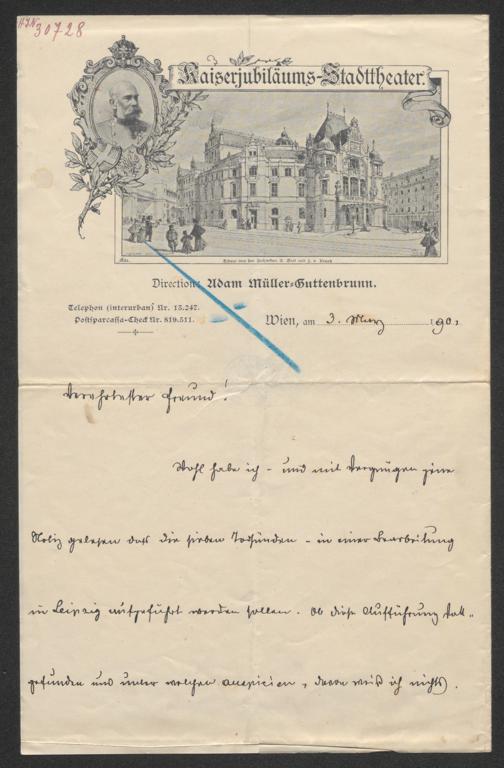 H.I.N. 30728
Kaiserjubiläums-Stadttheater.
Direction: Adam Müller-Guttenbrunn.
Telephon (interurban) Nr. 13.247.
Postsparcassa-Check Nr. 819.511.
Wien, am 3. März 190
Verehrtester Freund!
Wohl habe ich – und mit Vergnügen jene
Notiz gelesen daß die sieben Todsünden – in einer Bearbeitung
in Leipzig aufgeführt werden sollen. Ob diese Aufführung statt-
gefunden und unter welchen Auspicien, davon weiß ich nichts.